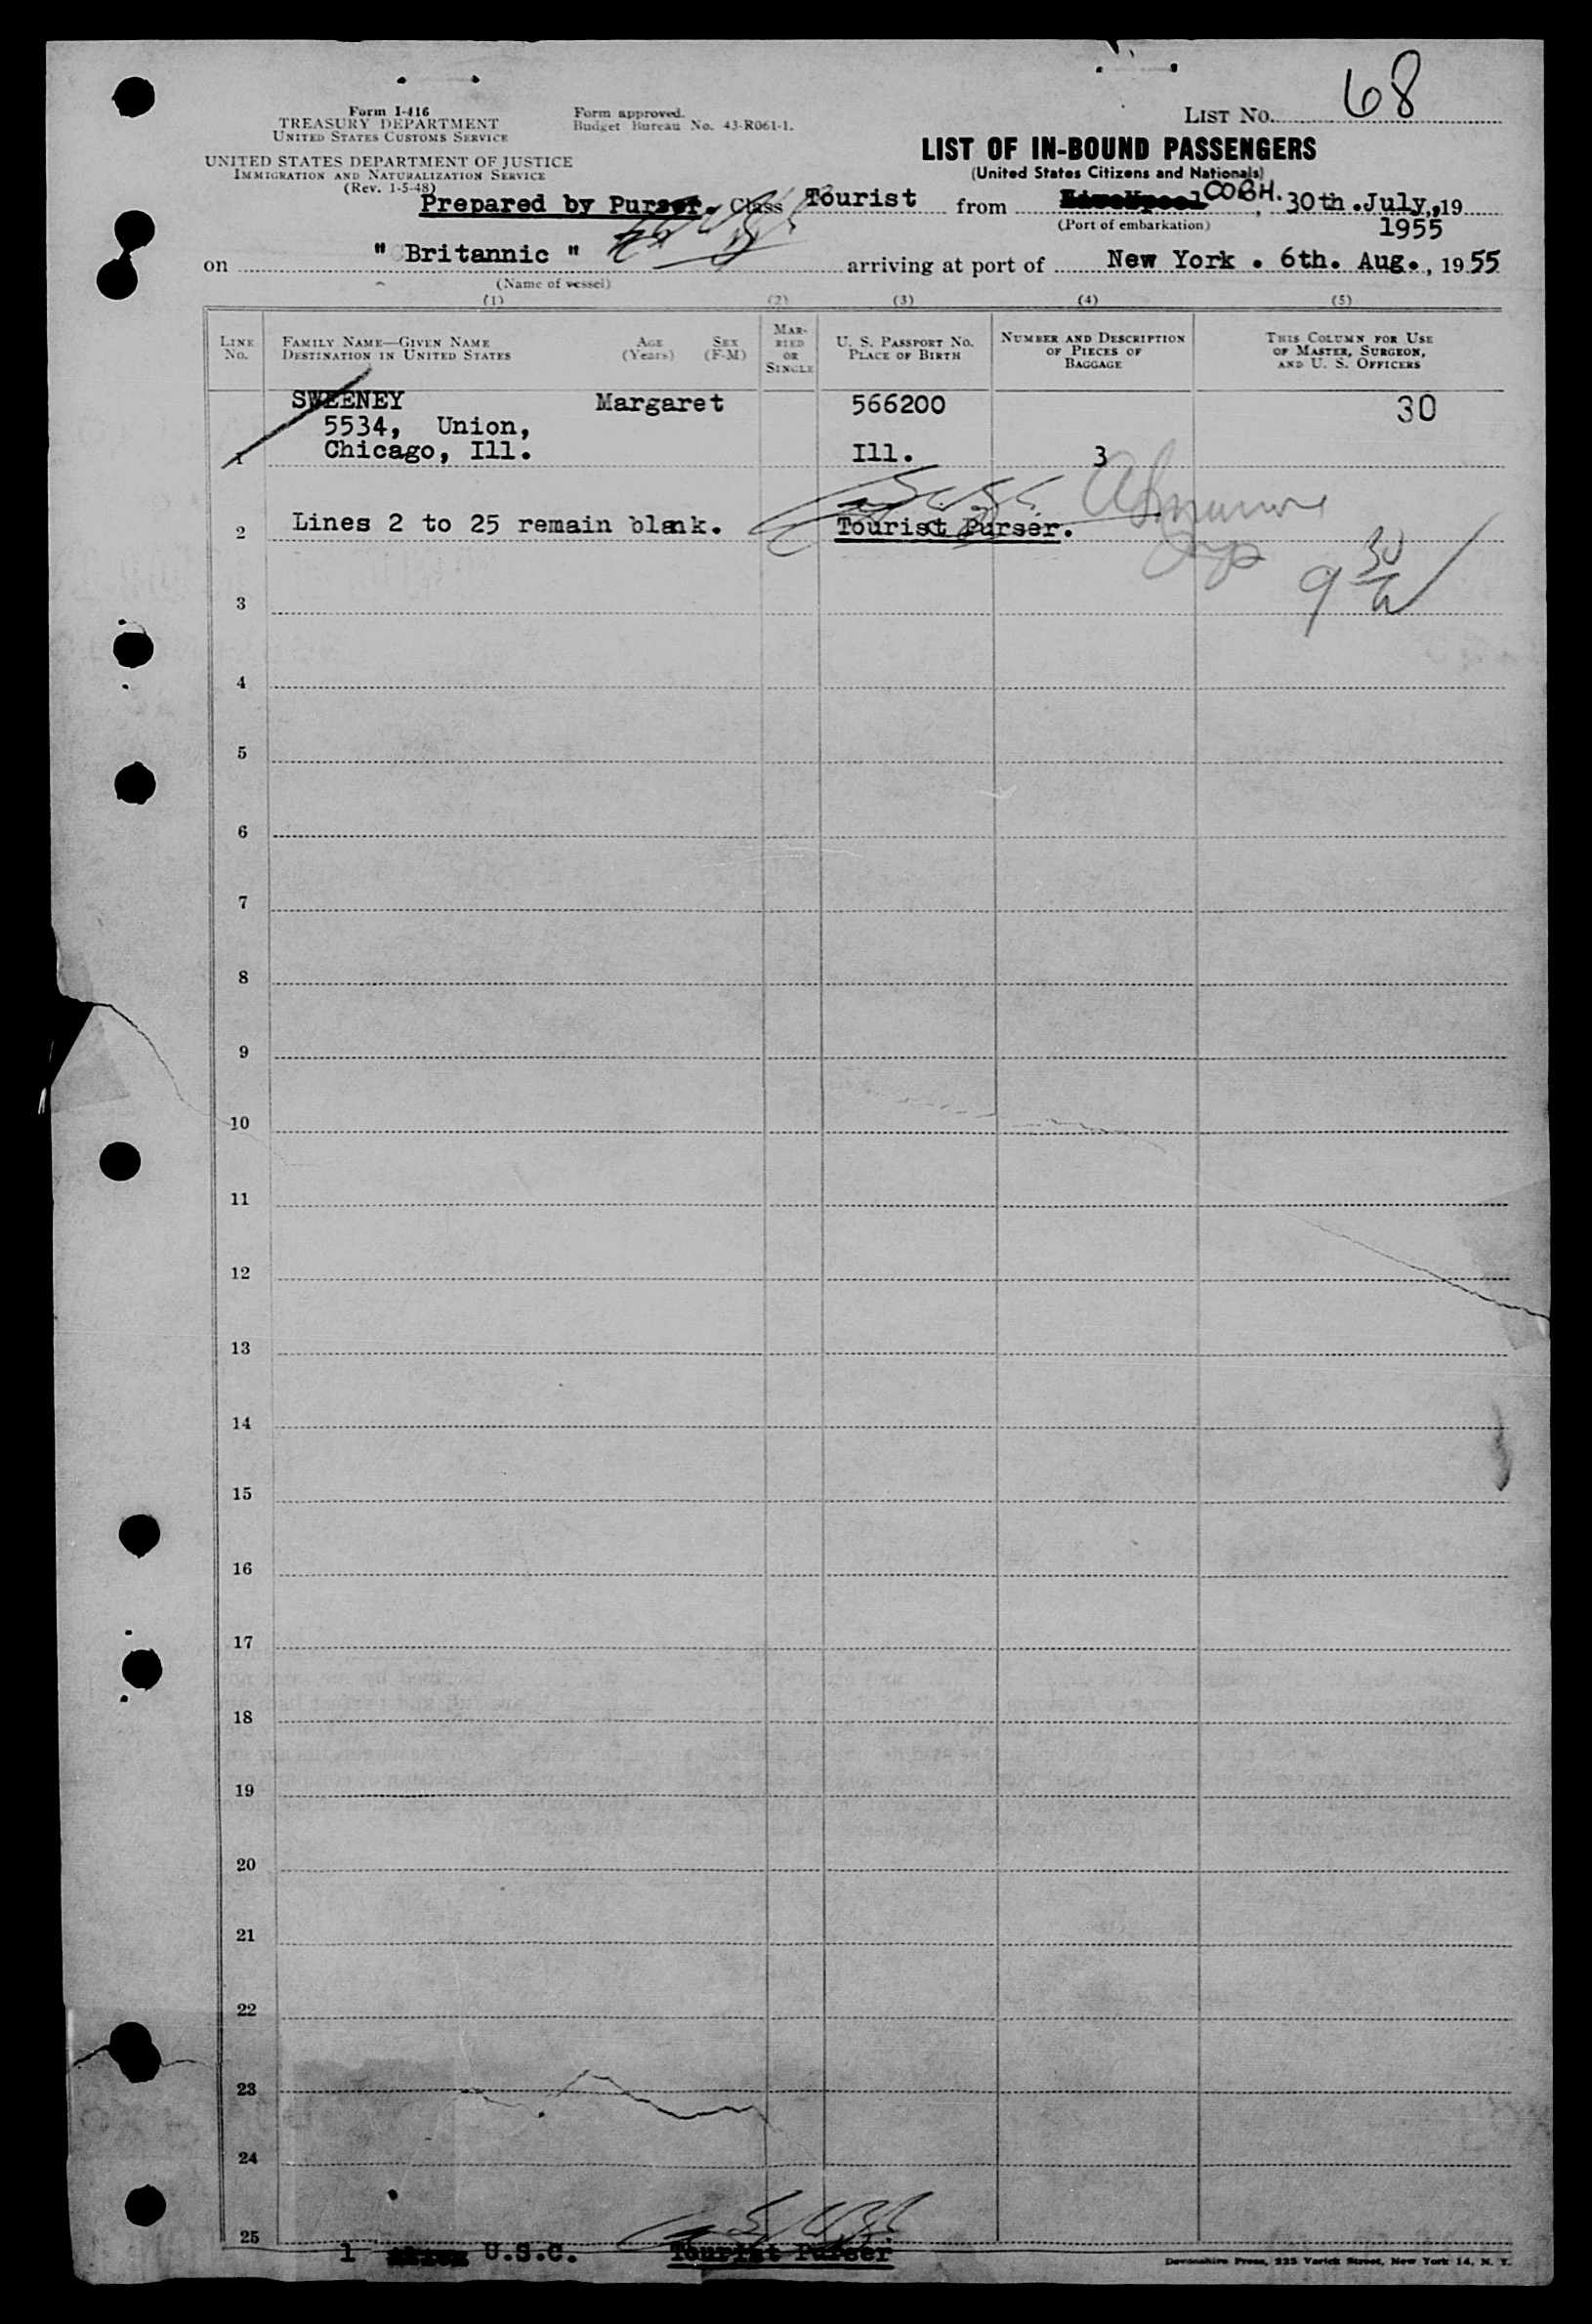 LIST No. 68
Form I-416
TREASURY DEPARTMENT
UNITED STATES CUSTOMS SERVICE
Form approved.
Budget Bureau No. 43-R061-1.
UNITED STATES DEPARTMENT OF JUSTICE
IMMIGRATION AND NATURALIZATION SERVICE
(Rev. 1-5-48)
LIST OF IN-BOUND PASSENGERS
(United States Citizens and Nationals)
Prepared by Purser. Class Tourist from Liverpool COBH. , 30th.July,,19
(Port of embarkation) 1955
on " Britannic " arriving at port of New York . 6th. Aug. , 1955
(Name of vessel)
(1) (2) (3) (4) (5)
LINE No.
FAMILY NAME—GIVEN NAME
DESTINATION IN UNITED STATES
AGE (Years)
SEX (F-M)
MARRIED OR SINGLE
U. S. PASSPORT No.
PLACE OF BIRTH
NUMBER AND DESCRIPTION
OF PIECES OF
BAGGAGE
THIS COLUMN FOR USE
OF MASTER, SURGEON,
AND U. S. OFFICERS
SWEENEY Margaret 566200 30
5534, Union,
1 Chicago, Ill. Ill. 3
2 Lines 2 to 25 remain blank. Tourist Purser.
9 30
3
4
5
6
7
8
9
10
11
12
13
14
15
16
17
18
19
20
21
22
23
24
25
1 U.S.C. Tourist Purser
Devonshire Press, 225 Varick Street, New York 14, N. Y.